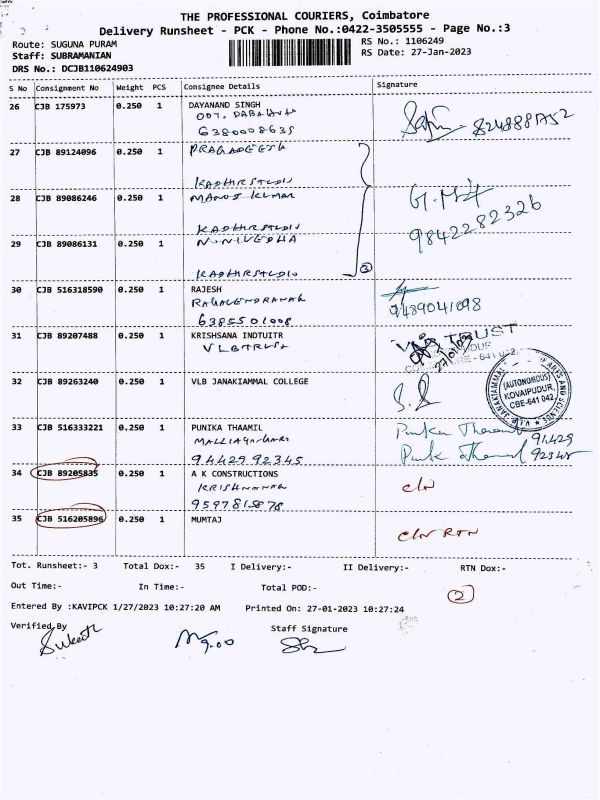 THE PROFESSIONAL COURIERS, Coimbatore
Delivery Runsheet - PCK - Phone No.:0422-3505555 - Page No.:3
Route: SUGUNA PURAM
RS No.: 1106249
Staff: SUBRAMANIAN
RS Date: 27-Jan-2023
DRS No.: DCJB110624903
S No Consignment No Weight PCS Consignee Details Signature
26 CJB 175973 0.250 1 DAYANAND SINGH
6380008635
27 CJB 89124096 0.250 1 PRAGADEESH
KADHIRSTUDIO
28 CJB 89086246 0.250 1 MANOJ KUMAR
KADHIRSTUDIO
9842282326
29 CJB 89086131 0.250 1 N.NIVEDHA
KADHIRSTUDIO
3
30 CJB 516318590 0.250 1 RAJESH
RAGAVENDRANAR
6385501008
9489041098
31 CJB 89207488 0.250 1 KRISHSANA INDTUITR
VLBTRUST
TRUST
27/01/23
32 CJB 89263240 0.250 1 VLB JANAKIAMMAL COLLEGE
(AUTONOMOUS)
KOVAIPUDUR,
CBE-641 042.
33 CJB 516333221 0.250 1 PUNIKA THAAMIL
9442992345
91429
92345
34 CJB 89205835 0.250 1 A K CONSTRUCTIONS
KRISHNANAR
9597815878
C/N
35 CJB 516205896 0.250 1 MUMTAJ
C/N RTN
Tot. Runsheet:- 3 Total Dox:- 35 I Delivery:- II Delivery:- RTN Dox:-
Out Time:- In Time:- Total POD:-
2
Entered By :KAVIPCK 1/27/2023 10:27:20 AM Printed On: 27-01-2023 10:27:24
Verified By
Staff Signature
9.00